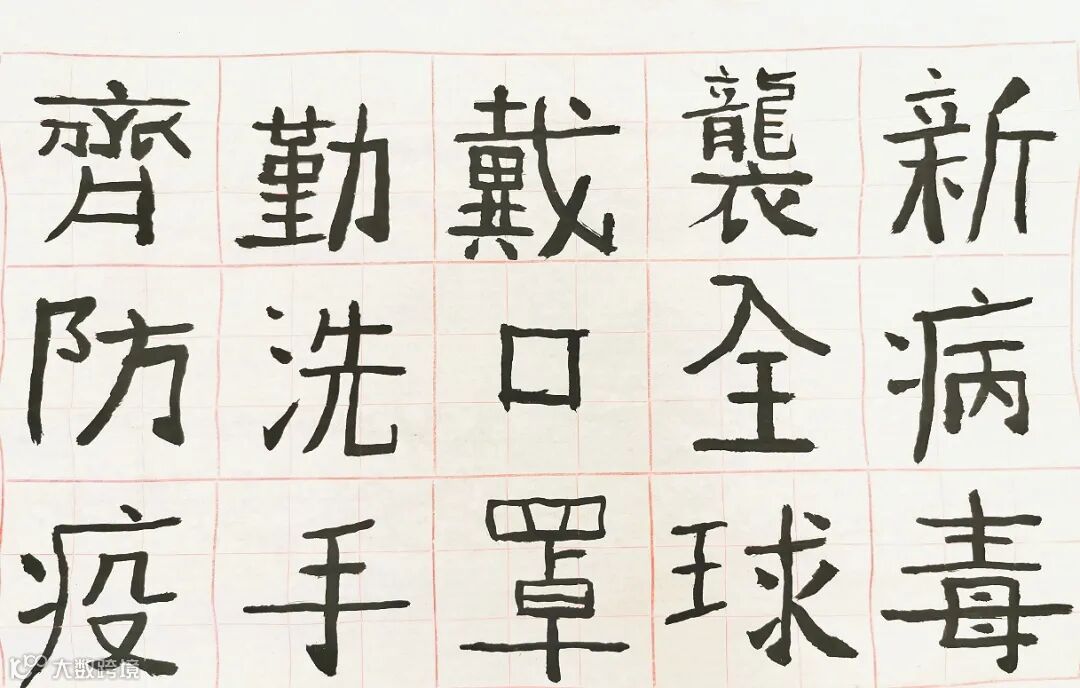 新病毒
襲全球
戴口罩
勤洗手
齊防疫
大数跨境